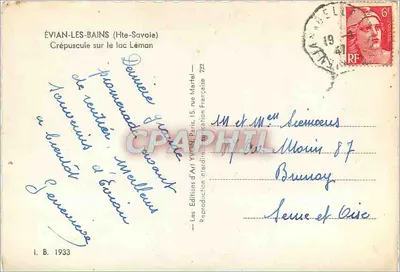 ÉVIAN-LES-BAINS (Hte-Savoie)
Crépuscule sur le lac Léman
Dernière grande
promenade avant
de rentrer. Meilleurs
souvenirs d'Evian
a bientôt
Geneviève
I. B. 1933
Les Editions d'Art YVON, Paris, 15, rue Martel
Reproduction interdite Fabrication Française 722
19
47
6F
RF
CPARAMA
M et Mme
87
Brunoy
Seine et Oise